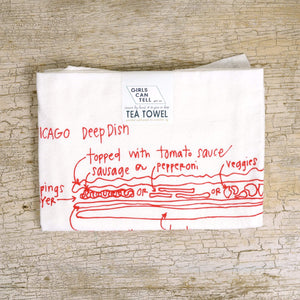 GIRLS
CAN
TELL
TEA TOWEL
ICAGO DeepDish
topped with tomato sauce/
sausage or pepperoni
veggies
pings OR OR
YER